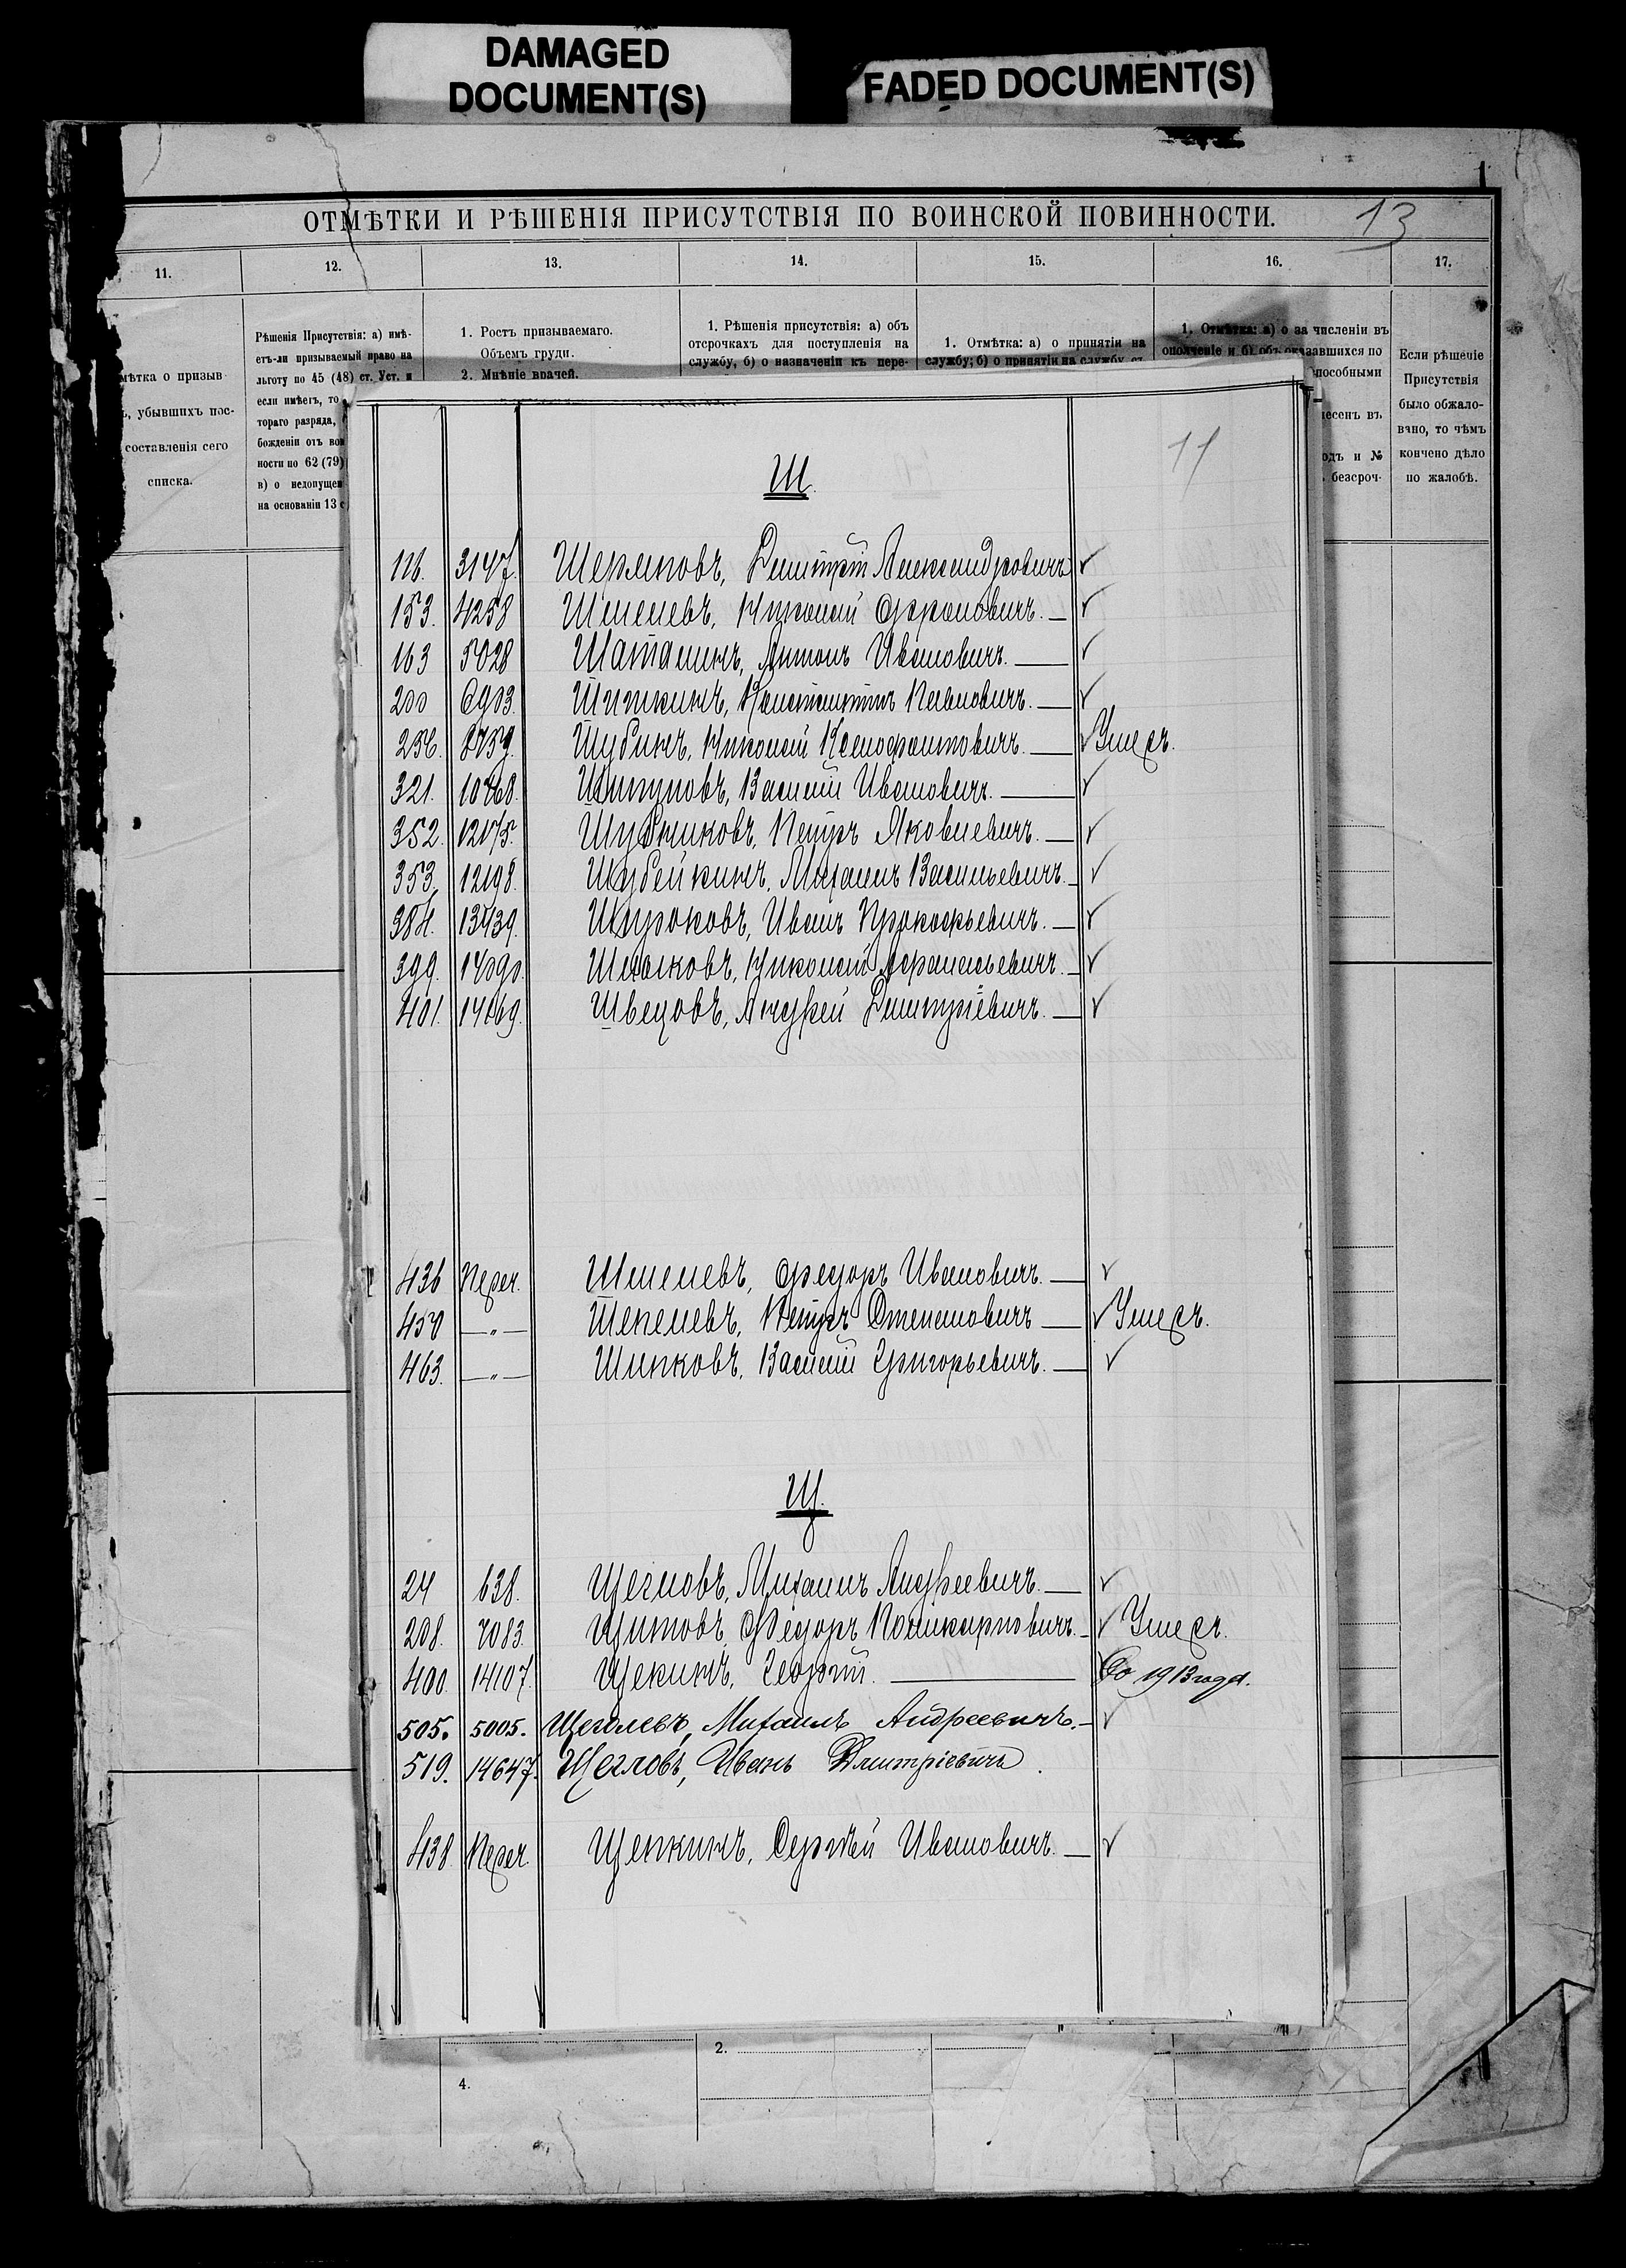 DAMAGED DOCUMENT(S)
FADED DOCUMENT(S)
1
ОТМѢТКИ И РѢШЕНІЯ ПРИСУТСТВІЯ ПО ВОИНСКОЙ ПОВИННОСТИ. 13
11. 12. 13. 14. 15. 16. 17.
мѣтка о призыв
ъ, убывшихъ пос-
составленія сего
списка.
Рѣшенія Присутствія: а) имѣ-
етъ-ли призываемый право на
льготу по 45 (48) ст. Уст. и
если имѣетъ, то
тораго разряда,
божденіи отъ вои
ности по 62 (79)
в) о недопущен
на основаніи 13 с
1. Ростъ призываемаго.
Объемъ груди.
2. Мнѣніе врачей.
1. Рѣшенія присутствія: а) объ
отсрочкахъ для поступленія на
службу, б) о назначеніи къ пере-
1. Отмѣтка: а) о принятіи на
службу; б) о принятіи на службу съ
1. Отмѣтка: а) о за численіи въ
ополченіе и б) объ оказавшихся по
пособными
несенъ въ
одъ и №
безсроч-
Если рѣшеніе
Присутствія
было обжало-
вано, то чѣмъ
кончено дѣло
по жалобѣ.
11
Ш.
116. 3147. Шерляковъ, Дмитрій Александровичъ ✓
153. 4258 Шмелевъ, Николай Афроновичъ. — ✓
163 5028 Шаталинъ, Антонъ Ивановичъ. — ✓
200 6903. Шишкинъ, Константинъ Павловичъ. — ✓
256. 8759. Шубинъ, Николай Ксенофонтовичъ. — ✓ Умеръ.
321. 10868. Шипуновъ, Василій Ивановичъ. — ✓
352. 12175. Шубниковъ, Петръ Яковлевичъ. — ✓
353. 12198. Шубейкинъ, Михаилъ Васильевичъ. — ✓
384. 13439. Шуроковъ, Иванъ Прокофьевичъ. — ✓
399. 14090. Шалыковъ, Николай Афанасьевичъ. — ✓
401. 14169. Швецовъ, Андрей Дмитріевичъ. — ✓
436 Переч. Шмелевъ, Федоръ Ивановичъ. — ✓
450 —„— Шепелевъ, Петръ Степановичъ — ✓ Умеръ.
463. —„— Шипковъ, Василій Григорьевичъ. — ✓
Щ.
24 638. Щегловъ, Михаилъ Андреевичъ. — ✓
208. 7083. Щитовъ, Федоръ Поликарповичъ. — ✓ Умеръ.
400. 14107. Щекинъ, Георгій. — До 1913 года.
505. 5005. Щеголевъ, Михаилъ Андреевичъ. — ✓
519. 14647. Щегловъ, Иванъ Дмитріевичъ.
438. Переч. Щепкинъ, Сергѣй Ивановичъ. — ✓
2.
4.